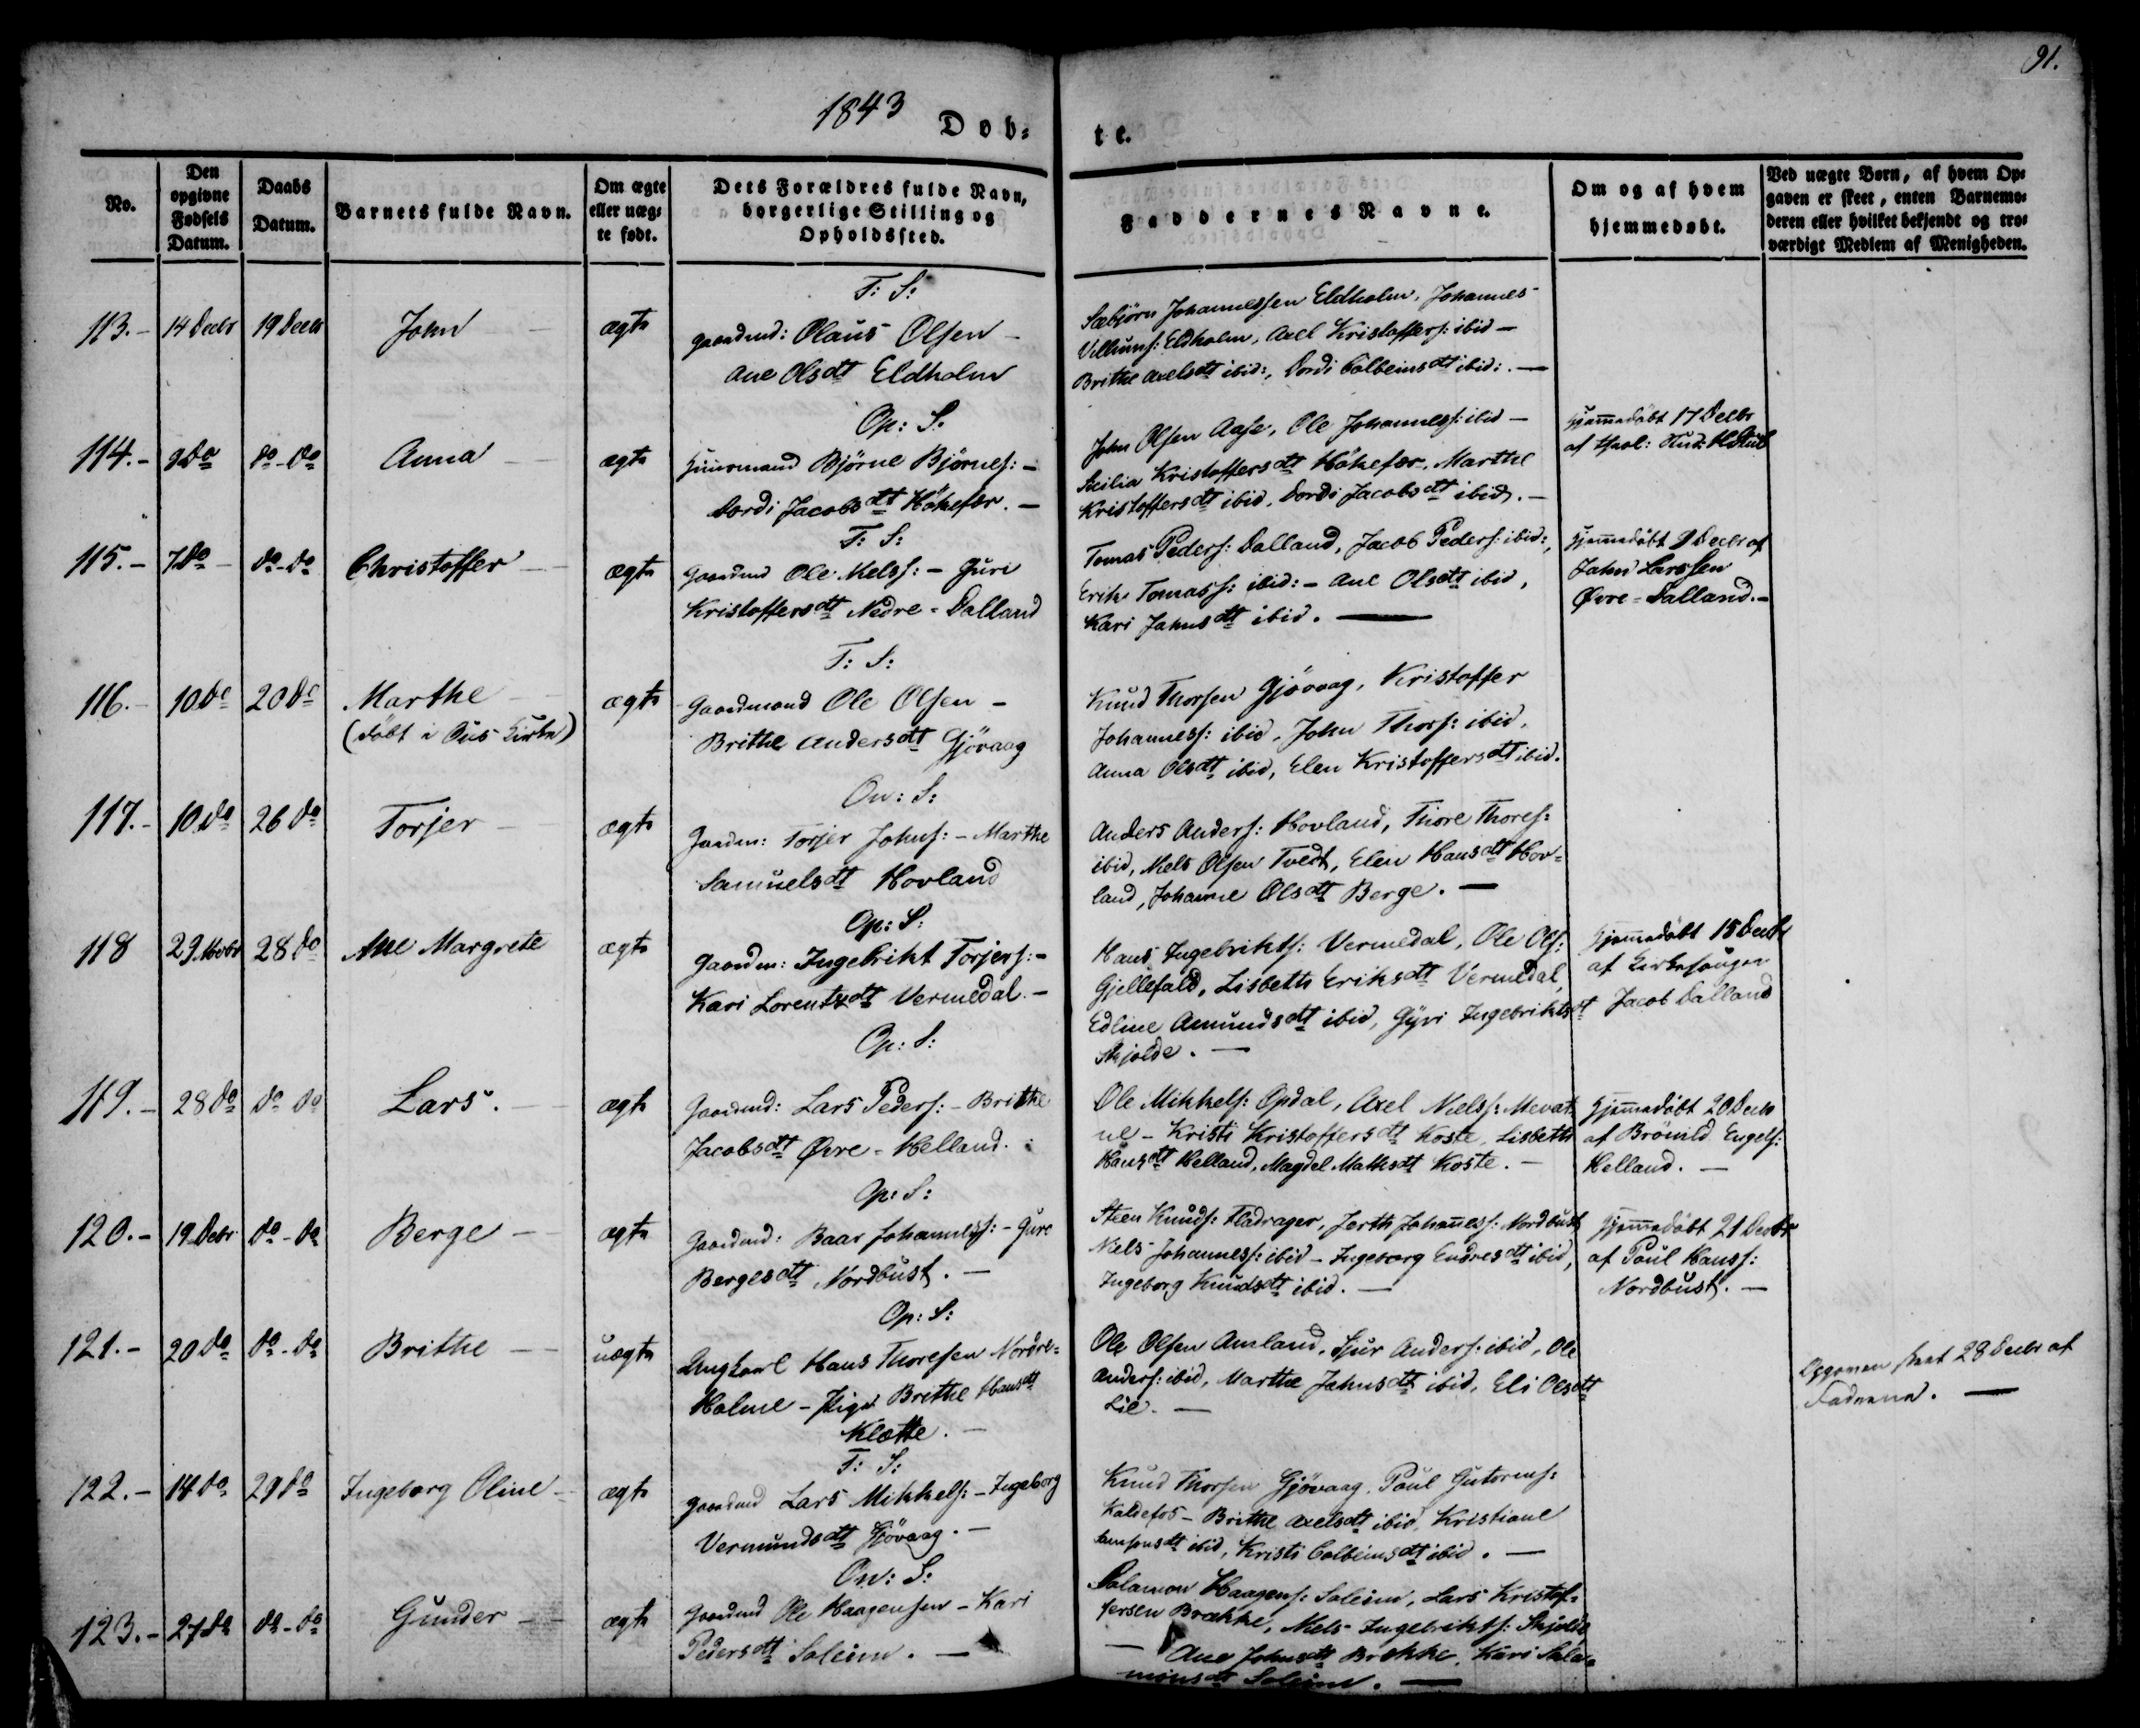 91.
1843
Døb-
te.
No.
Den opgivne Fødsels Datum.
Daabs Datum.
Barnets fulde Navn.
Om ægte eller uægte født.
Dets Forældres fulde Navn, borgerlige Stilling og Opholdssted.
Faddernes Navne.
Om og af hvem hjemmedøbt.
Ved uægte Børn, af hvem Opgaven er skeet, enten Barnemoderen eller hvilket bekjendt og troværdigt Medlem af Menigheden.
T: S:
113.- 14 Decbr 19 Decbr John ægte
Gaardmd: Olaus Olsen -
Ane Olsdtt Eldholm
Sæbjørn Johannessen Eldholm, Johannes
Villiums: Eldholm, Axel Kristoffers: ibid -
Brithe Axelsdtt ibid:, Dordi Colbeinsdtt ibid:. -
Op: S.
114.- 9 Do Do - Do Anna ægte
Huusmand Bjørne Bjørnes: -
Dordi Jacobsdtt Høkefær. -
John Olsen Aase, Ole Johanness: ibid -
Kristoffersdtt Høkefær, Marthe
Kristoffersdtt ibid, Dordi Jacobsdtt ibid. -
Hjemmedøbt 17 Decbr
T: S:
115.- 7 Do - Do - Do Christoffer ægte
Gaardmd Ole Nelss: - Guri
Kristoffersdtt Nedre-Dalland
Tomas Peders: Dalland, Jacob Peders: ibid:,
Erik Tomass: ibid: - Ane Olsdtt ibid,
Kari Johnsdtt ibid. -
Hjemmedøbt 9 Decbr af
John Larssen
Øvre-Dalland. -
T: S:
116.- 10 Do 20 Do Marthe ægte
(døbt i Ous Kirke)
Gaardmand Ole Olsen -
Brithe Andersdtt Gjövaag
Knud Thorsen Gjövaag, Kristoffer
Johanness: ibid, John Thors: ibid.
Anna Olsdtt ibid, Elen Kristoffersdtt ibid.
On: S:
117.- 10 Do 26 Do Torjer ægte
Gaardm: Torjer Johns: - Marthe
Samuelsdtt Hovland
Anders Anders: Hovland, Thore Thores:
ibid, Nels Olsen Tvedt, Elen Hansdtt Hov-
land, Johanne Olsdtt Berge. -
Op: S:
118 29 Novbr 28 Do Ane Margrete ægte
Gaardm: Ingebrikt Torjers: -
Kari Lorentzdtt Vermedal. -
Hans Ingebrikts: Vermedal, Ole Ols:
Gjellefald, Lisbeth Eriksdtt Vermedal,
Edline Amundsdtt ibid, Gyri Ingebriktsdt
Skjolde. -
Hjemmedøbt 15 Decbr
af Kirkesanger
Jacob Dalland
Op: S:
119.- 28 Do Do Do Lars. ægte
Gaardmd: Lars Peders: - Brithe
Jacobsdtt Øvre-Helland.
Ole Mikkels: Opdal, Axel Niels: Mevat-
ne - Kristi Kristoffersdtt Koste, Lisbeth
Hansdtt Helland, Magdel Mathsdtt Koste. -
Hjemmedøbt 20 Decbr
af Brönild Engels:
Helland. -
Op: S:
120.- 19 Debr Do - Do Berge ægte
Gaardmd: Baar Johanness: - Gure
Bergesdtt Nordbust. -
Steen Knuds: Fladrager, Jerth Johanness: Nordbust
Niels Johanness: ibid - Ingeborg Endresdtt ibid,
Ingeborg Knudsdtt ibid. -
Hjemmedøbt 21 Decbr
af Paul Hanss:
Nordbust. -
Op: S:
121.- 20 Do Do - Do Brithe uægte
Ungkarl Hans Thoresen Nordre-
Holme - Pige Brithe Hansdtt
Klætte. -
Ole Olsen Amland, Sjur Anders: ibid, Ole
Anders: ibid, Marthe Johnsdtt ibid, Eli Olsdtt
Lie. -
Opgaven skeet 28 Decbr af
Faderen. -
T: S:
122.- 14 Do 29 Do Ingeborg Oline ægte
Gaardmd Lars Mikkels: - Ingeborg
Vermundsdtt Gjövaag. -
Knud Thorsen Gjövaag, Paul Gutorms:
Kaldefos - Brithe Axelsdtt ibid, Kristiane
Samsonsdtt ibid, Kristi Colbeinsdtt ibid. -
On: S:
123.- 27 Do Do - Do Gunder ægte
Gaardmd Ole Haagensen - Kari
Pedersdtt Soleim. -
Salamon Haagens: Soleim, Lars Kristof-
fersen Brække, Nels Ingebrikts: Skjolde
- Ane Johnsdtt Brekke, Kari Sala-
monsdtt Soleim. -